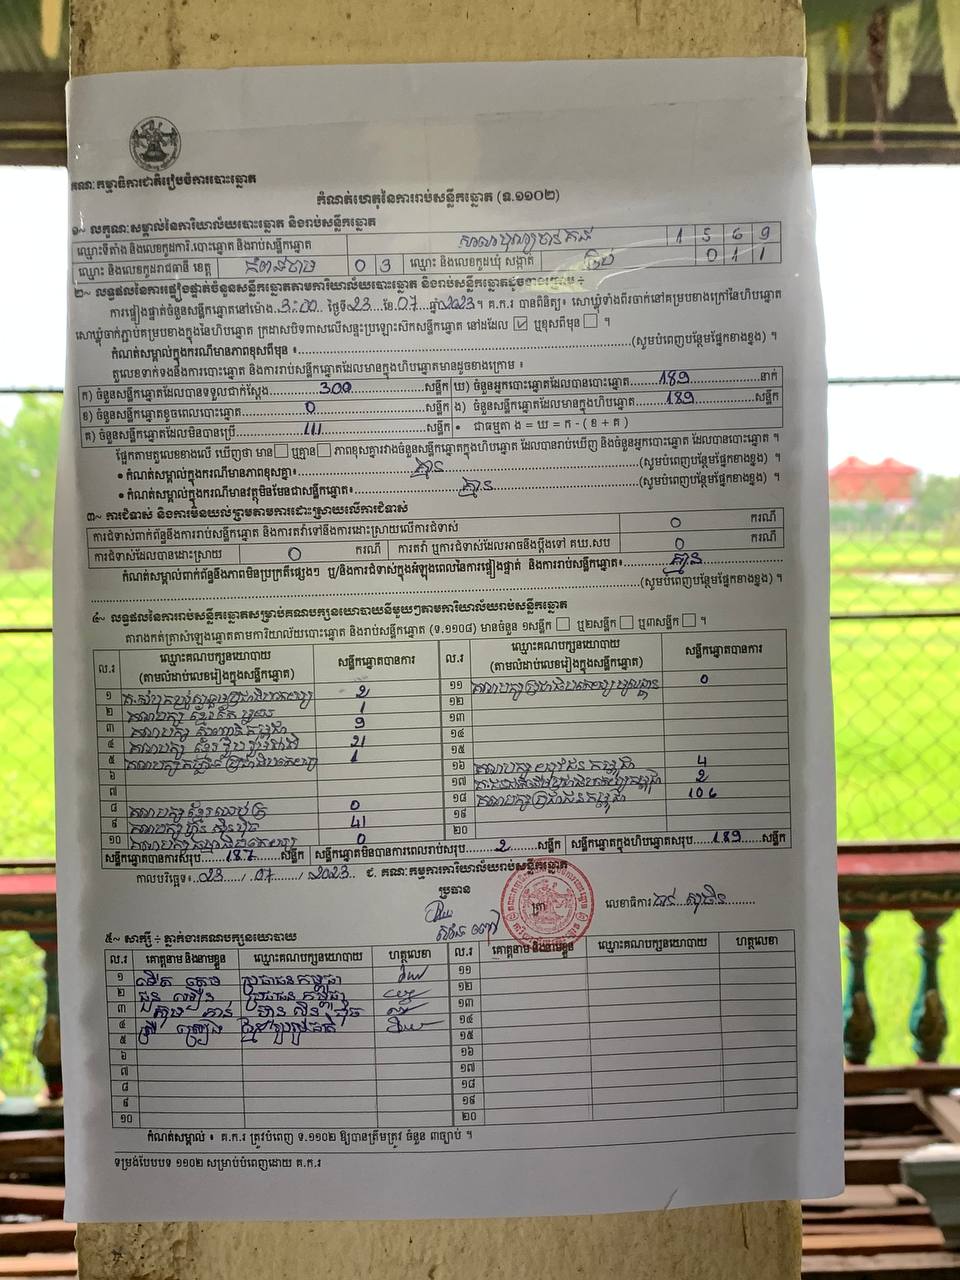 គណៈកម្មាធិការជាតិរៀបចំការបោះឆ្នោត
កំណត់ហេតុនៃការរាប់សន្លឹកឆ្នោត (ទ.១១០២)
១~ លក្ខណៈសម្គាល់នៃការិយាល័យបោះឆ្នោត និងរាប់សន្លឹកឆ្នោត
ឈ្មោះទីតាំង និងលេខកូដការិ.បោះឆ្នោត និងរាប់សន្លឹកឆ្នោត 1 5 6 9
ឈ្មោះ និងលេខកូដរាជធានី ខេត្ត កំពង់ចាម 0 3 ឈ្មោះ និងលេខកូដឃុំ សង្កាត់ 0 1 1
២~ លទ្ធផលនៃការផ្ទៀងផ្ទាត់ចំនួនសន្លឹកឆ្នោតតាមការិយាល័យបោះឆ្នោត និងរាប់សន្លឹកឆ្នោតដូចខាងក្រោម ÷
ការផ្ទៀងផ្ទាត់ចំនួនសន្លឹកឆ្នោតនៅម៉ោង 3:00 ថ្ងៃទី 23 ខែ 07 ឆ្នាំ 2023 ។ គ.ក.រ បានពិនិត្យ៖ សោឃ្លុំទាំងពីរចាក់នៅគម្របខាងក្រៅនៃហិបឆ្នោត
សោឃ្លុំចាក់ភ្ជាប់គម្របខាងក្នុងនៃហិបឆ្នោត ក្រដាសបិទពាសលើសន្ទះប្រឡោះសិកសន្លឹកឆ្នោត នៅដដែល ☑ ឬខុសពីមុន ☐ ។
កំណត់សម្គាល់ក្នុងករណីមានភាពខុសពីមុន ៖ (សូមបំពេញបន្ថែមផ្នែកខាងខ្នង) ។
តួលេខទាក់ទងនឹងការបោះឆ្នោត និងការរាប់សន្លឹកឆ្នោតដែលមានក្នុងហិបឆ្នោតមានដូចខាងក្រោម ៖
ក) ចំនួនសន្លឹកឆ្នោតដែលបានទទួលជាក់ស្តែង 300 សន្លឹក ឃ) ចំនួនអ្នកបោះឆ្នោតដែលបានបោះឆ្នោត 189 នាក់
ខ) ចំនួនសន្លឹកឆ្នោតខូចពេលបោះឆ្នោត 0 សន្លឹក ង) ចំនួនសន្លឹកឆ្នោតដែលមានក្នុងហិបឆ្នោត 189 សន្លឹក
គ) ចំនួនសន្លឹកឆ្នោតដែលមិនបានប្រើ 111 សន្លឹក • ជាធម្មតា ង = ឃ = ក - ( ខ + គ )
ផ្អែកតាមតួលេខខាងលើ ឃើញថា មាន ☐ ឬគ្មាន ☐ ភាពខុសគ្នារវាងចំនួនសន្លឹកឆ្នោតក្នុងហិបឆ្នោត ដែលបានរាប់ឃើញ និងចំនួនអ្នកបោះឆ្នោត ដែលបានបោះឆ្នោត ។
• កំណត់សម្គាល់ក្នុងករណីមានភាពខុសគ្នា៖ គ្មាន (សូមបំពេញបន្ថែមផ្នែកខាងខ្នង) ។
• កំណត់សម្គាល់ក្នុងករណីមានវត្ថុមិនមែនជាសន្លឹកឆ្នោត៖ គ្មាន (សូមបំពេញបន្ថែមផ្នែកខាងខ្នង) ។
៣~ ការជំទាស់ និងការមិនយល់ព្រមតាមការដោះស្រាយលើការជំទាស់
ការជំទាស់ពាក់ព័ន្ធនឹងការរាប់សន្លឹកឆ្នោត និងការតវ៉ាទៅនឹងការដោះស្រាយលើការជំទាស់ 0 ករណី
ការជំទាស់ដែលបានដោះស្រាយ 0 ករណី ការតវ៉ា ឬការជំទាស់ដែលអាចនឹងប្ដឹងទៅ គឃ.សប 0 ករណី
កំណត់សម្គាល់ពាក់ព័ន្ធនឹងភាពមិនប្រក្រតីផ្សេងៗ ឬ/និងការជំទាស់ក្នុងអំឡុងពេលនៃការផ្ទៀងផ្ទាត់ និងការរាប់សន្លឹកឆ្នោត៖ គ្មាន
(សូមបំពេញបន្ថែមផ្នែកខាងខ្នង) ។
៤~ លទ្ធផលនៃការរាប់សន្លឹកឆ្នោតសម្រាប់គណបក្សនយោបាយនីមួយៗតាមការិយាល័យរាប់សន្លឹកឆ្នោត
តារាងកត់ត្រាសំឡេងឆ្នោតតាមការិយាល័យបោះឆ្នោត និងរាប់សន្លឹកឆ្នោត (ទ.១១០៨) មានចំនួន ១សន្លឹក ☐ ឬ២សន្លឹក ☐ ឬ៣សន្លឹក ☐ ។
ល.រ ឈ្មោះគណបក្សនយោបាយ (តាមលំដាប់លេខរៀងក្នុងសន្លឹកឆ្នោត) សន្លឹកឆ្នោតបានការ ល.រ ឈ្មោះគណបក្សនយោបាយ (តាមលំដាប់លេខរៀងក្នុងសន្លឹកឆ្នោត) សន្លឹកឆ្នោតបានការ
១ 2 ១១ 0
២ គណបក្ស ខ្មែររួបរួម 1 ១២
៣ គណបក្ស 9 ១៣
៤ គណបក្ស ខ្មែរ 21 ១៤
៥ គណបក្ស ប្រជាធិបតេយ្យ 1 ១៥
៦ ១៦ គណបក្ស យុវជនកម្ពុជា 4
៧ ១៧ 2
៨ គណបក្ស ខ្មែរ 0 ១៨ គណបក្ស ប្រជាជនកម្ពុជា 106
៩ គណបក្ស ហ៊្វុនស៊ិនប៉ិច 41 ១៩
១០ 0 ២០
សន្លឹកឆ្នោតបានការសរុប 187 សន្លឹក សន្លឹកឆ្នោតមិនបានការពេលរាប់សរុប 2 សន្លឹក សន្លឹកឆ្នោតក្នុងហិបឆ្នោតសរុប 189 សន្លឹក
កាលបរិច្ឆេទ៖ 23 / 07 / 2023 ៩. គណៈកម្មការការិយាល័យរាប់សន្លឹកឆ្នោត
ប្រធាន
ត្រា លេខាធិការ
៥~ សាក្សី ÷ ភ្នាក់ងារគណបក្សនយោបាយ
ល.រ គោត្តនាម និងនាមខ្លួន ឈ្មោះគណបក្សនយោបាយ ហត្ថលេខា ល.រ គោត្តនាម និងនាមខ្លួន ឈ្មោះគណបក្សនយោបាយ ហត្ថលេខា
១ ប្រជាជនកម្ពុជា ១១
២ ប្រជាជនកម្ពុជា ១២
៣ ១៣
៤ ១៤
៥ ១៥
៦ ១៦
៧ ១៧
៨ ១៨
៩ ១៩
១០ ២០
កំណត់សម្គាល់ ៖ គ.ក.រ ត្រូវបំពេញ ទ.១១០២ ឱ្យបានត្រឹមត្រូវ ចំនួន ៣ច្បាប់ ។
ទម្រង់បែបបទ ១១០២ សម្រាប់បំពេញដោយ គ.ក.រ